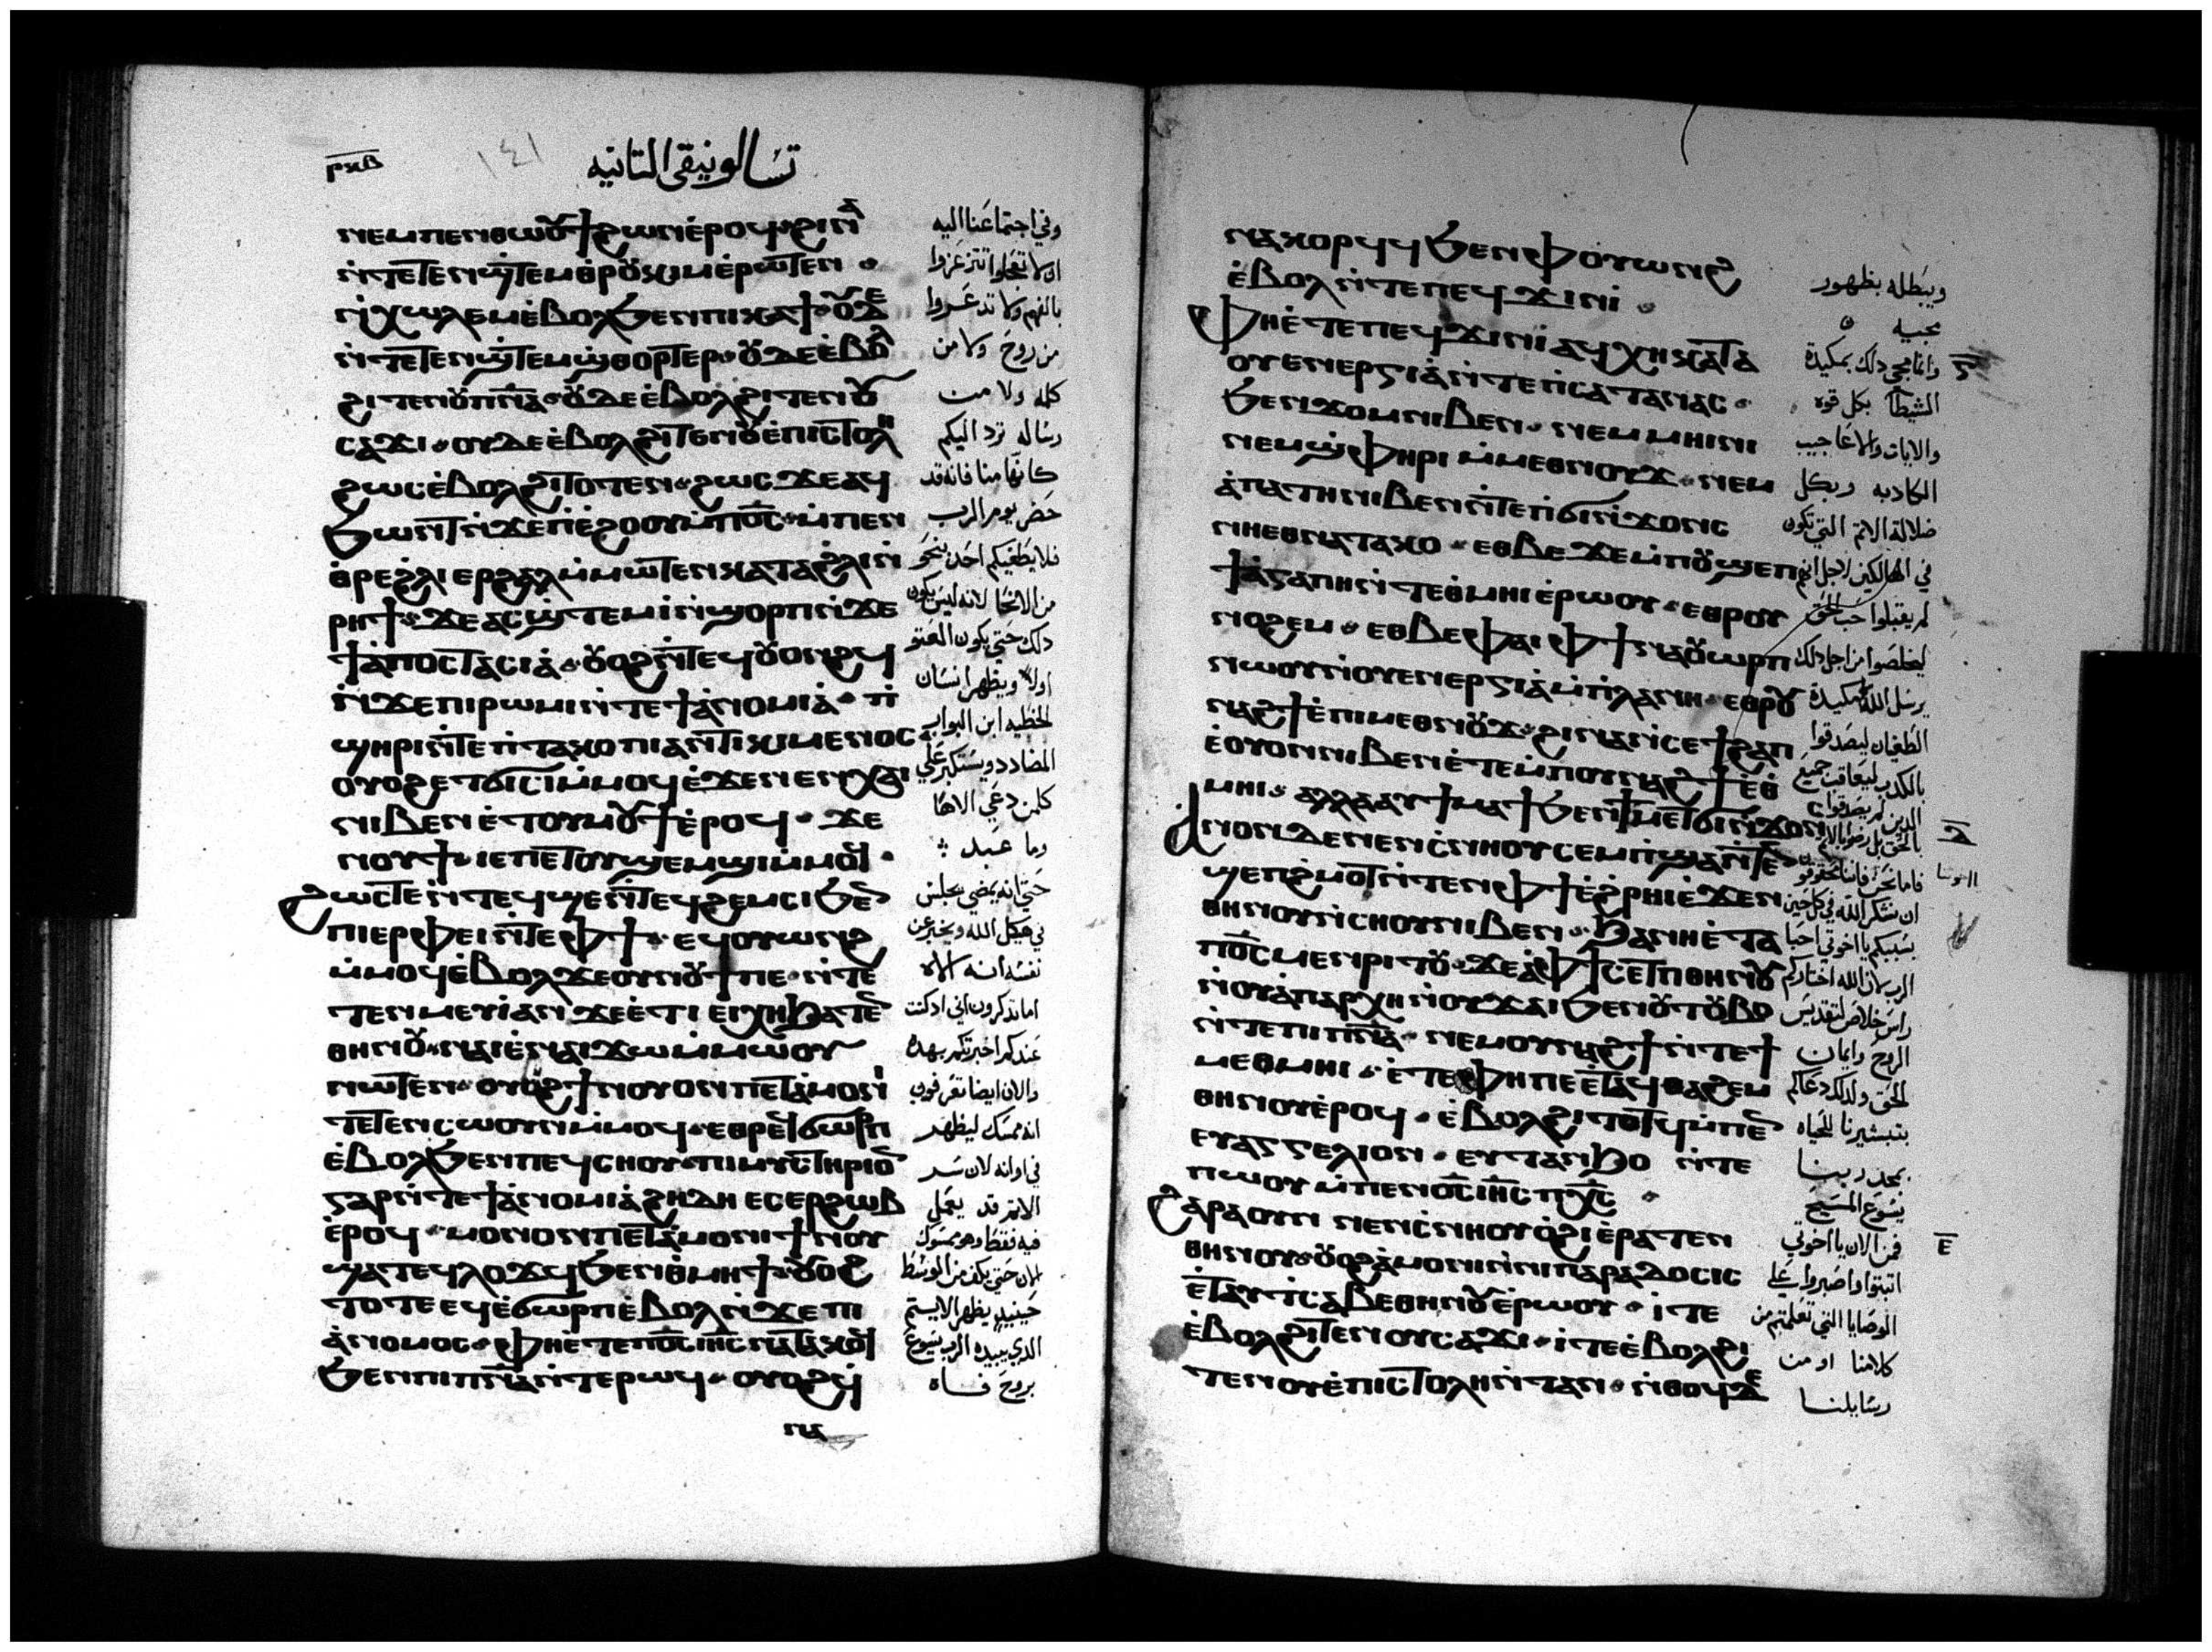 ⲣⲝⲃ
١٤١
تسالونيقي التانيه
ⲛⲉⲙ ⲡⲉⲛⲑⲱⲟⲩϯ ϩⲱⲛ ⲉ̀ⲣⲟϥ ϩⲓⲛⲁ
ⲛ̀ⲧⲉⲧⲉⲛϣⲧⲉⲙⲑⲣⲟⲩⲕⲓⲙ ⲉ̀ⲣⲱⲧⲉⲛ
ⲛ̀ⲭⲱⲗⲉⲙ ⲉ̀ⲃⲟⲗϧⲉⲛ ⲡⲓⲕⲁϯ ⲟⲩⲇⲉ
ⲛ̀ⲧⲉⲧⲉⲛϣⲧⲉⲙϣⲑⲟⲣⲧⲉⲣ ⲟⲩⲇⲉ ⲉ̀ⲃⲟⲗ
ϩⲓⲧⲉⲛ ⲟⲩⲡⲛⲁ ⲟⲩⲇⲉ ⲉ̀ⲃⲟⲗϩⲓⲧⲉⲛ ⲟⲩ
ⲥⲁϫⲓ ⲟⲩⲇⲉ ⲉ̀ⲃⲟⲗϩⲓⲧⲉⲛ ⲟⲩⲉ̀ⲡⲓⲥⲧⲟⲗⲏ
ϩⲱⲥ ⲉ̀ⲃⲟⲗϩⲓⲧⲟⲧⲉⲛ ϩⲱⲥ ϫⲉ ⲁϥ
ϧⲱⲛⲧ ⲛ̀ϫⲉ ⲡⲓⲉ̀ϩⲟⲟⲩ ⲙ̀ⲡⲟⲥ ⲙ̀ⲡⲉⲛ
ⲑⲣⲉ ϩⲗⲓ ⲉⲣϩⲁⲗ ⲙ̀ⲙⲱⲧⲉⲛ ⲕⲁⲧⲁ ϩⲗⲓ ⲛ̀
ⲣⲏϯ ϫⲉ ⲁⲥϣⲧⲉⲙⲓ̀ ⲛ̀ϣⲟⲣⲡ ⲛ̀ϫⲉ
ϯⲁ̀ⲡⲟⲥⲧⲁⲥⲓⲁ̀ ⲟⲩⲟϩ ⲛ̀ⲧⲉϥⲟⲩⲟⲛϩϥ
ⲛ̀ϫⲉ ⲡⲓⲣⲱⲙⲓ ⲛ̀ⲧⲉ ϯⲁ̀ⲛⲟⲙⲓⲁ̀ ⲡ̀
ϣⲏⲣⲓ ⲛ̀ⲧⲉ ⲡ̀ⲧⲁⲕⲟ ⲡⲓⲁⲛⲧⲓⲕⲓⲙⲉⲛⲟⲥ
ⲟⲩⲟϩ ⲉⲧϭⲓⲥⲓ ⲙ̀ⲙⲟϥ ⲉ̀ϫⲉⲛ ⲉⲛⲭⲁⲓ
ⲛⲓⲃⲉⲛ ⲉ̀ⲧⲟⲩⲙⲟⲩϯ ⲉ̀ⲣⲟϥ ϫⲉ
ⲛⲟⲩϯ ⲓⲉ ⲡⲉⲧⲟⲩϣⲉⲙϣⲓ ⲙ̀ⲙⲟϥ
ϩⲱⲥⲧⲉ ⲛ̀ⲧⲉϥϣⲉ ⲛ̀ⲧⲉϥϩⲉⲙⲥⲓ ϧⲉⲛ
ⲡⲓⲉⲣⲫⲉⲓ ⲛ̀ⲧⲉ ⲫϯ ⲉϥⲟⲩⲱⲛϩ
ⲙ̀ⲙⲟϥ ⲉ̀ⲃⲟⲗ ϫⲉ ⲟⲩⲛⲟⲩϯ ⲡⲉ ⲛ̀ⲧⲉ
ⲧⲉⲛⲙⲉⲩⲓ̀ ⲁⲛ ϫⲉ ⲉ̀ⲧⲓ ⲉⲓⲭⲏ ϧⲁⲧⲉⲛ
ⲑⲏⲛⲟⲩ ⲛⲁⲓ ⲉ̀ⲛⲁⲓϫⲱ ⲙ̀ⲙⲱⲟⲩ
ⲛⲱⲧⲉⲛ ⲟⲩⲟϩ ϯⲛⲟⲩ ⲟⲛ ⲡⲉⲧⲁ̀ⲙⲟⲛⲓ
ⲧⲉⲧⲉⲛⲥⲱⲟⲩⲛ ⲙ̀ⲙⲟϥ ⲉⲑⲣⲉϥϭⲱⲣⲡ
ⲉ̀ⲃⲟⲗϧⲉⲛ ⲡⲉϥⲥⲏⲟⲩ ⲡⲓⲙⲩⲥⲧⲏⲣⲓⲟⲛ
ⲅⲁⲣ ⲛ̀ⲧⲉ ϯⲁ̀ⲛⲟⲙⲓⲁ̀ ϩⲏⲇⲏ ⲉⲥⲉⲣϩⲱⲃ
ⲉ̀ⲣⲟϥ ⲙⲟⲛⲟⲛ ⲡⲉⲧⲁ̀ⲙⲟⲛⲓ ϯⲛⲟⲩ
ϣⲁⲧⲉϥⲗⲟϫϥ ϧⲉⲛ ⲑ̀ⲙⲏϯ ⲟⲩⲟϩ
ⲧⲟⲧⲉ ⲉϥⲉ̀ϭⲱⲣⲡ ⲉ̀ⲃⲟⲗ ⲛ̀ϫⲉ ⲡⲓ
ⲁ̀ⲛⲟⲙⲟⲥ ⲫⲏ ⲉ̀ⲧⲉ ⲡⲟⲥ ⲓⲏⲥ ⲛⲁⲧⲁⲕⲟϥ
ϧⲉⲛ ⲡⲓⲡⲛⲁ ⲛ̀ⲧⲉ ⲣⲱϥ ⲟⲩⲟϩ ϥ̀
ⲛⲁ
وفي اجتماعنا اليه
ان لا تعجلوا تتزعزوا
بالفهم ولا تدعروا
من روح ولا من
كلمه ولا من
رساله ترد اليكم
كانها منا فانه قد
حضر يوم الرب
فلا يطغيكم احد بنحو
من الانحا لانه ليس يكون
دلك حتى يكون العتو
اولا ويظهر انسان
الخطيه ابن البوار
المضادد ويستكبر على
كلمن دعي الاها
وما عبد
حتي انه يمضي يجلس
في هيكل الله ويخبر عن
نفسه انه الاه
اما تدكرون اني اد كنت
عندكم اخبرتكم بهده
والان ايضا تعرفون
انه ممسك ليظهر
في اوانه لان سر
الاتم قد يعمل
فيه فقط وهو ممسوك
الان حتى يكف من الوسط
حينيد يظهر الايتم
الدي يبيده الرب يسوع
بروح فاه
ⲛⲁⲕⲟⲣϥϥ ϧⲉⲛ ⲫⲟⲩⲱⲛϩ
ⲉ̀ⲃⲟⲗ ⲛ̀ⲧⲉ ⲡⲉϥϫⲓⲛⲓ̀
ⲫⲏ ⲉ̀ⲧⲉ ⲡⲉϥϫⲓⲛⲓ̀ ⲁϥⲭⲏ ⲕⲁⲧⲁ
ⲟⲩⲉⲛⲉⲣⲅⲓⲁ̀ ⲛ̀ⲧⲉ ⲡ̀ⲥⲁⲧⲁⲛⲁⲥ
ϧⲉⲛ ϫⲟⲙ ⲛⲓⲃⲉⲛ ⲛⲉⲙ ⲙⲏⲓⲛⲓ
ⲛⲉⲙ ϣⲫⲏⲣⲓ ⲙ̀ⲙⲉⲑⲛⲟⲩϫ ⲛⲉⲙ
ⲁ̀ⲡⲁⲧⲏ ⲛⲓⲃⲉⲛ ⲛ̀ⲧⲉ ⲡ̀ϭⲓⲛ̀ϫⲟⲛⲥ
ⲛⲏⲉⲑⲛⲁⲧⲁⲕⲟ ⲉⲑⲃⲉ ϫⲉ ⲙ̀ⲡⲟⲩϣⲉⲡ
ϯⲁ̀ⲅⲁⲡⲏ ⲛ̀ⲧⲉ ⲑ̀ⲙⲏⲓ ⲉ̀ⲣⲱⲟⲩ ⲉⲑⲣⲟⲩ
ⲛⲟϩⲉⲙ ⲉⲑⲃⲉ ⲫⲁⲓ ⲫϯ ⲛⲁⲟⲩⲱⲣⲡ
ⲛⲱⲟⲩ ⲛ̀ⲟⲩⲉⲛⲉⲣⲅⲓⲁ̀ ⲙ̀ⲡⲗⲁⲛⲏ ⲉⲑⲣⲟⲩ
ⲛⲁϩϯ ⲉ̀ⲡⲓⲙⲉⲑⲛⲟⲩϫ ϩⲓⲛⲁ ⲛ̀ⲥⲉϯϩⲁⲡ
ⲉ̀ⲟⲩⲟⲛ ⲛⲓⲃⲉⲛ ⲉ̀ⲧⲉ ⲙ̀ⲡⲟⲩⲛⲁϩϯ ⲉ̀ⲑ
ⲙⲏⲓ ⲁⲗⲗⲁ ⲁⲩϯⲙⲁϯ ϧⲉⲛ ϯⲙⲉⲧϭⲓⲛ̀ϫⲟⲛⲥ
ⲁⲛⲟⲛ ⲇⲉ ⲛⲉⲛⲥ̀ⲛⲏⲟⲩ ⲥⲉⲙ̀ⲡϣⲁ ⲛ̀ⲧⲉⲛ
ϣⲉⲡϩ̀ⲙⲟⲧ ⲛ̀ⲧⲉⲛ ⲫϯ ⲉ̀ϩ̀ⲣⲏⲓ ⲉ̀ϫⲉⲛ
ⲑⲏⲛⲟⲩ ⲛ̀ⲥⲏⲟⲩ ⲛⲓⲃⲉⲛ ϧⲁ ⲛⲏ ⲉ̀ⲧⲁ
ⲡⲟⲥ ⲙⲉⲛⲣⲓⲧⲟⲩ ϫⲉ ⲁ̀ ⲫϯ ⲥⲉⲧⲡ ⲑⲏⲛⲟⲩ
ⲛ̀ⲟⲩⲁ̀ⲡⲁⲣⲭⲏ ⲛ̀ⲟⲩϫⲁⲓ ϧⲉⲛ ⲟⲩⲧⲟⲩⲃⲟ
ⲛ̀ⲧⲉ ⲡⲓⲡⲛⲁ ⲛⲉⲙ ⲟⲩⲛⲁϩϯ ⲛ̀ⲧⲉ ϯ
ⲙⲉⲑⲙⲏⲓ ⲉ̀ⲧⲉ ⲫⲏ ⲡⲉ ⲉ̀ⲧⲁϥⲑⲁϩⲉⲙ
ⲑⲏⲛⲟⲩ ⲉ̀ⲣⲟϥ ⲉ̀ⲃⲟⲗϩⲓⲧⲟⲧϥ ⲙ̀ⲡⲉⲛ
ⲉⲩⲁⲅⲅⲉⲗⲓⲟⲛ ⲉⲩⲧⲁⲛϧⲟ ⲛ̀ⲧⲉ
ⲡⲱⲟⲩ ⲙ̀ⲡⲉⲛⲟⲥ ⲓⲏⲥ ⲡⲭⲥ
ϩⲁⲣⲁ ⲟⲩⲛ ⲛⲉⲛⲥ̀ⲛⲏⲟⲩ ⲟ̀ϩⲓ ⲉ̀ⲣⲁⲧⲉⲛ
ⲑⲏⲛⲟⲩ ⲟⲩⲟϩ ⲁ̀ⲙⲟⲛⲓ ⲛ̀ⲛⲓⲡⲁⲣⲁⲇⲟⲥⲓⲥ
ⲉ̀ⲧⲁⲩⲧ̀ⲥⲁⲃⲉ ⲑⲏⲛⲟⲩ ⲉ̀ⲣⲱⲟⲩ ⲓ̀ⲧⲉ
ⲉ̀ⲃⲟⲗϩⲓⲧⲉⲛ ⲟⲩⲥⲁϫⲓ ⲓ̀ⲧⲉ ⲉ̀ⲃⲟⲗϩⲓ
ⲧⲉⲛ ⲟⲩⲉ̀ⲡⲓⲥⲧⲟⲗⲏ ⲛ̀ⲧⲁⲛ ⲛ̀ⲑⲟϥ ⲇⲉ
ويبطله بظهور
مجيه
وانما مجي دلك بمكيدة
الشيطا بكل قوه
والايات والاعاجيب
الكادبه وبكل
ضلالة الاتم التي تكون
في الهالكين لاجل انهم
لم يقبلوا حب الحق
ليخلصوا من اجل دلك
يرسل الله مكيدة
الطغيان ليصدقوا
بالكدب ليعاقب جميع
الدين لم يصدقوا
بالحق بل رضوا بالاتم
فاما نحن فانا محقوقون
ان نشكر الله في كل حين
بسببكم يا اخوتي احبا
الرب لان الله اختاركم
راس خلاص لتقديس
الروح وايمان
الحق ولدلك دعاكم
بتبشيرنا للحياه
بمجد ربنا
يسوع المسيح
فمن الان يا اخوتي
اتبتوا واصبروا على
الوصايا التي تعلمتم من
كلامنا او من
رسايلنا
ⲅ
ⲇ
ⲉ